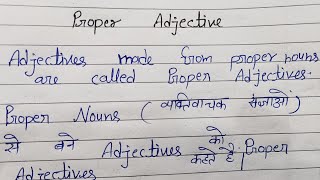 Proper Adjective
Adjectives made from proper nouns
are called Proper Adjectives.
Proper Nouns (व्यक्तिवाचक संज्ञाओं)
से बने Adjectives को Proper
Adjectives कहते हैं।